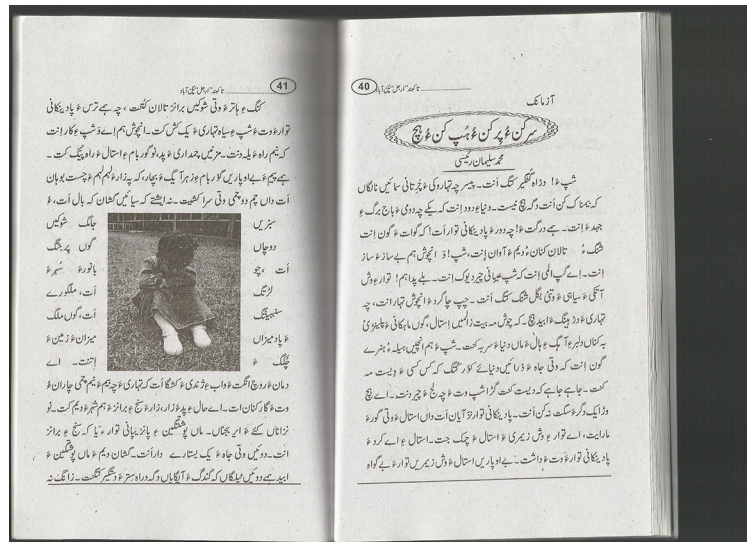 40
آزمانک
سر کن ءُ پر کن ءُ ہُپ کن ءُ ہچ
محمد سلیمان رئیسی
شپ ءَ! دراہ گلگیر کتگ اَنت۔ پیسر چہ تہاروکی ءِ چرتانی سائیں نالگاں
کہ بیمناک کن اَنت دگہ ہچ نیست۔ دنیاءِ دود اِنت کہ یکے چہ دومی ءَ باج برگ ءِ
جہد ءَ اِنت۔ ہے درگت ءَ! چہ دور ءَ پادینکانی توار اَت! کہ گوات ءَ گون اِنت
شنگ ءُ تالان کنان ءُ دیم ءَ آوان اِنت، شپ! ءَ انچوش ہم بے ساز ءَ ساز
اِنت۔ اے گپ الّمی اِنت کہ شپ عیبانی چیردیوک اِنت۔ بلے پدا ہم! توار ءِ وش
آتکی ءَ سیاہی ءَ وتی بگل شنگ کتگ اَنت۔ چپ چاگرد ءَ انچوش تہار اِنت، چہ
تہاری ءَ دز ہینگ ءَ ابید ہچ۔ کہ چوش مہ بیت زالمیں استال، گوں ماہکانی ءَ پلینڑی
بہ کناں دلبر ءِ آہگ ءِ ہال ءَ ماں دنیا ءَ سر بہ کنت۔ شپ ءَ ہم انچیں ہیلہ ءُ ہنرے
گون اِنت کہ وتی جاہ ءَ درائیں دنیائے کور کتگ کہ کس کسی ءَ دیست مہ
کنت۔ جاہے جاہے کہ دیست کنت گڑا شپ وت ءَ چہ لج ءَ چیر دنت۔ اے ہچ
وڑا ایک دگر ءَ سگت نہ کن اَنت۔ پادینکانی توار نزآیان اَت داں استال ءَ وتی گور ءَ
مارایت، اے توار ءِ وش زیمری ءَ استال ءَ چمک جت۔ استال ءِ اے کرد ءَ
پادینکانی توار ءَ وت ءَ داشت۔ بے اوپاریں استال ءَ وش زیمریں توار ءِ بے گواہ
41
کنگ ءِ ہاتر ءَ وتی شوکیں برانز تالان کلنت، چہ ہے ترس ءَ پادینکانی
توار ءَ وت ءَ شپ ءِ سیاہ تہاری ءَ یک کش کت۔ انچوش ہم اے ءَ شپ ءِ کار اِنت
کہ نیم راہ ءَ یلہ دنت۔ مزنیں چمداری ءَ پد، نوگور بام ءِ استال ءَ راہ پیک کت۔
ہے پیم ءَ بے اوپاریں گور بام ءِ زہر آہگ ءَ بچار، کہ پہ زار ءَ
اَت داں چم دوچمی وتی سرا کشیت۔ نہ اشتے کہ سائیں گشان کہ بال اَت، ءَ
سبزیں جانگ شوکیں
دوچاں گوں پرینگ
اَت، چو بانور ءَ سُہر ءَ
لڑتگ اَت، ملکورے
سنبہینگ اَت، گوں ملگ
ءَ پادیمزاں میزان ءَ زمین ءَ
چُلّگ ءَ اِتنت۔ اے
دمان ءَ روچ انگت ءَ واب ءِ ژندی ءَ کشگا اَت کہ تہاری ءَ چہ بیم ءَ نیم چمی چاران ءَ
وت ءَ گار کنان اَت۔ اے حال ءِ پد ءَ زار، زار ءَ سنج ءِ برانز ءَ ہم شہر ءَ دیم کت۔ نو
نزاناں کئے ءَ امبر بجناں۔ ماں پوشنگیں ءِ پانزینیانی توار ءَ یا کہ سنج ءِ برانز
اَنت۔ دوئیں وتی جاہ ءَ یک بستارے دار اَنت۔ گشان دیم ءَ ماں پوشنگیں ءَ
ابید ہے دوئیں ٹپلگاں کہ گندگ ءَ آیگاہاں دگہ دراہ سترءَ دستگیر کتگنت۔ زانگ نہ